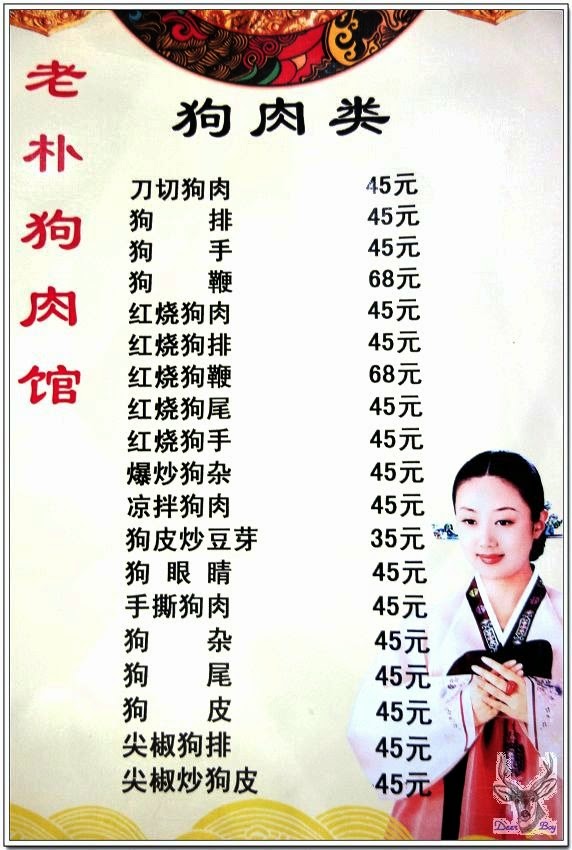 老朴狗肉馆
狗肉类
刀切狗肉 45元
狗 排 45元
狗 手 45元
狗 鞭 68元
红烧狗肉 45元
红烧狗排 45元
红烧狗鞭 68元
红烧狗尾 45元
红烧狗手 45元
爆炒狗杂 45元
凉拌狗肉 45元
狗皮炒豆芽 35元
狗 眼 睛 45元
手撕狗肉 45元
狗 杂 45元
狗 尾 45元
狗 皮 45元
尖椒狗排 45元
尖椒炒狗皮 45元
Deer Boy